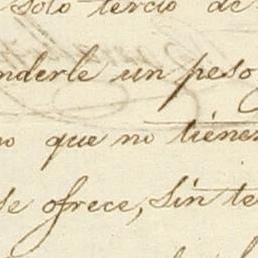 solo tercio de
nderle un peso
o que no tienen
se ofrece, sin te